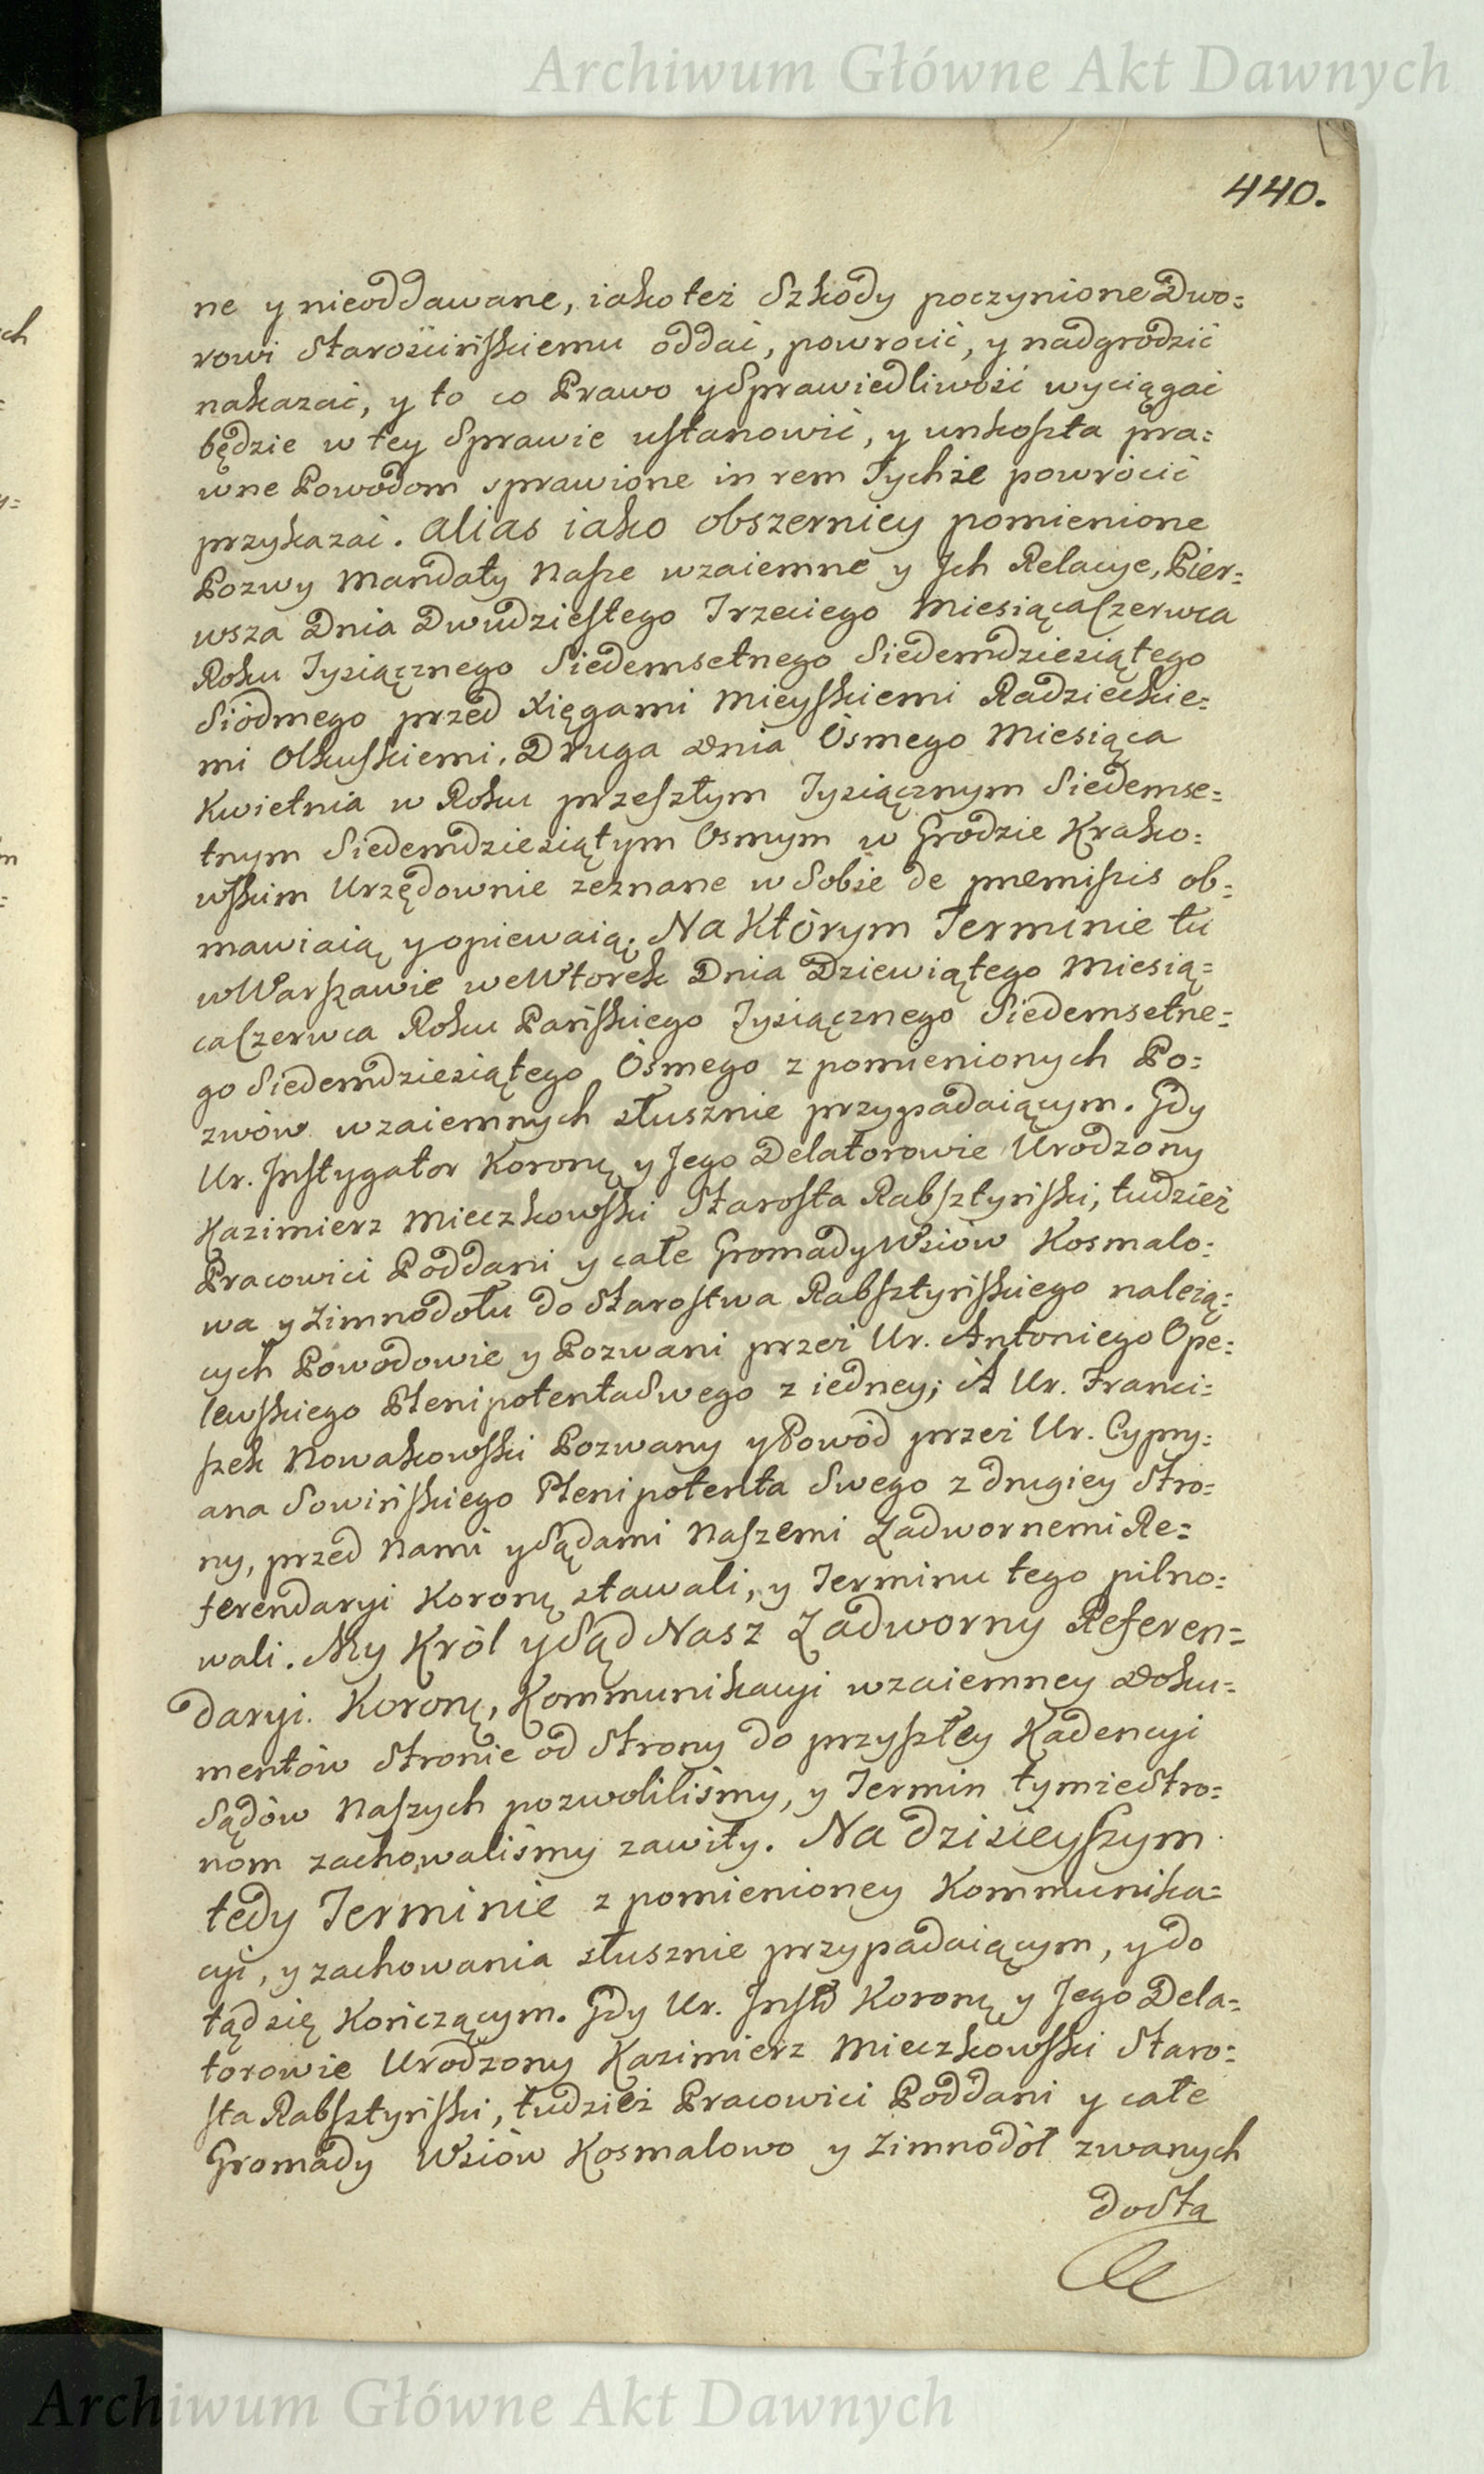 Archiwum Główne Akt Dawnych
440.
ne y nieoddawane, iako też Szkody poczynione Dwo=
rowi Starościńskiemu oddać, powrocić, y nadgrodzić
nakazać, y to co Prawo y Sprawiedliwość wyciągać
będzie w tey Sprawie ustanowić, y unkoszta pra=
wne Powodom sprawione in rem Tychże powrócić
przykazać. Alias iako obszerniey pomienione
Pozwy Mandaty Nasze wzaiemne y Jch Relacye, Pier=
wsza Dnia Dwudziestego Trzeciego Miesiąca Czerwca
Roku Tysiącznego Siedemsetnego Siedemdziesiątego
Siódmego przed Xięgami Mieyskiemi Radzieckie=
mi Olkuskiemi. Druga Dnia Ósmego Miesiąca
Kwietnia w Roku przeszłym Tysiącznym Siedemse=
tnym Siedemdziesiątym Osmym w Grodzie Krako=
wskim Urzędownie zeznane w Sobie de premissis ob=
mawiaią y opiewaią. Na Którym Terminie tu
w Warszawie we Wtorek Dnia Dziewiątego Miesią=
ca Czerwca Roku Pańskiego Tysiącznego Siedemsetne=
go Siedemdziesiątego Ósmego z pomienionych Po=
zwów wzaiemnych słusznie przypadaiącym. Gdy
Ur. Instygator Koronę y Jego Delatorowie Urodzony
Kazimierz Mieczkowski Starosta Rabsztyński, tudzież
Pracowici Poddani y całe Gromady Wsiów Kosmalo=
wa y Zimnodołu do Starostwa Rabsztyńskiego należą=
cych Powodowie y Pozwani przez Ur. Antoniego Ope=
lewskiego Plenipotenta Swego z iedney; A Ur. Franci=
szek Nowakowski Pozwany y Powód przez Ur. Cypry=
ana Sowińskiego Plenipotenta Swego z drugiey Stro=
ny, przed Nami y Sądami Naszemi Zadwornemi Re=
ferendaryi Koronę stawali, y Terminu tego pilno=
wali. My Król y Sąd Nasz Zadworny Referen=
daryi. Koronę, Kommunikacyi wzaiemney Doku=
mentów Stronie od Strony do przyszłey Kadencyi
Sądów Naszych pozwoliliśmy, y Termin tymże Stro=
nom zachowaliśmy zawity. Na dzisieyszym
tedy Terminie z pomienioney Kommunika=
cyi, y zachowania słusznie przypadaiącym, y do
tąd się Kończącym. Gdy Ur. Inst Koronę y Jego Dela=
torowie Urodzony Kazimierz Mieczkowski Staro=
sta Rabsztyński, tudzież Pracowici Poddani y całe
Gromady Wsiów Kosmalowo y Zimnodół zwanych
do Sta
Archiwum Główne Akt Dawnych